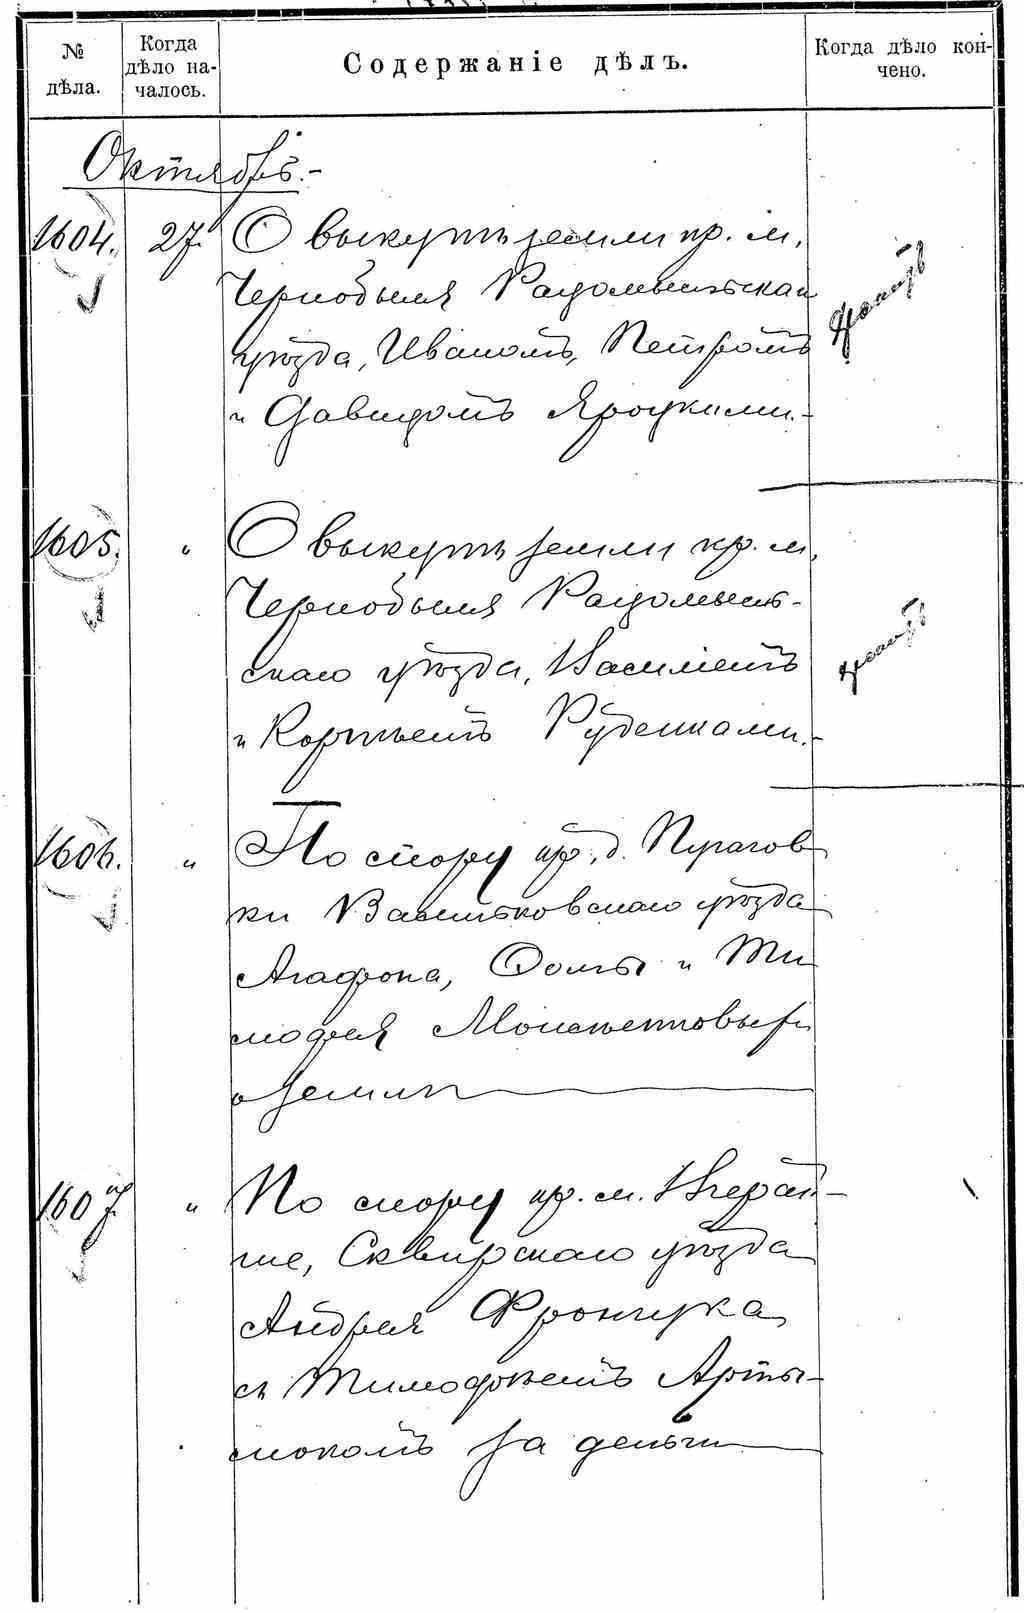 № дѣла.
Когда дѣло на-
чалось.
Содержаніе дѣлъ.
Когда дѣло кон-
чено.
Октябрь.-
1604. 27. О выкупѣ земли кр. м.
Чернобыля Радомысльскаго
уѣзда, Иваномъ, Петромъ
и Давидомъ Яроцкими.-
1605. " О выкупѣ земли кр. м.
Чернобыля Радомысль-
скаго уѣзда, Василіемъ
и Корнѣемъ Руденками.-
1606. " По спору кр. д. Пугачов-
ки Васильковскаго уѣзда
Агафона, Фомы и Ти
мофея
о землѣ
1607. " По спору кр. м.
Сквирскаго уѣзда
Андрея Фрончука
съ Тимофѣемъ Арты-
за деньги